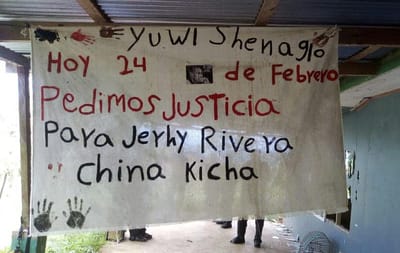 Yuwi Shenaglo
Hoy 24 de Febrero
Pedimos Justicia
Para Jerhy Rivera
China Kicha